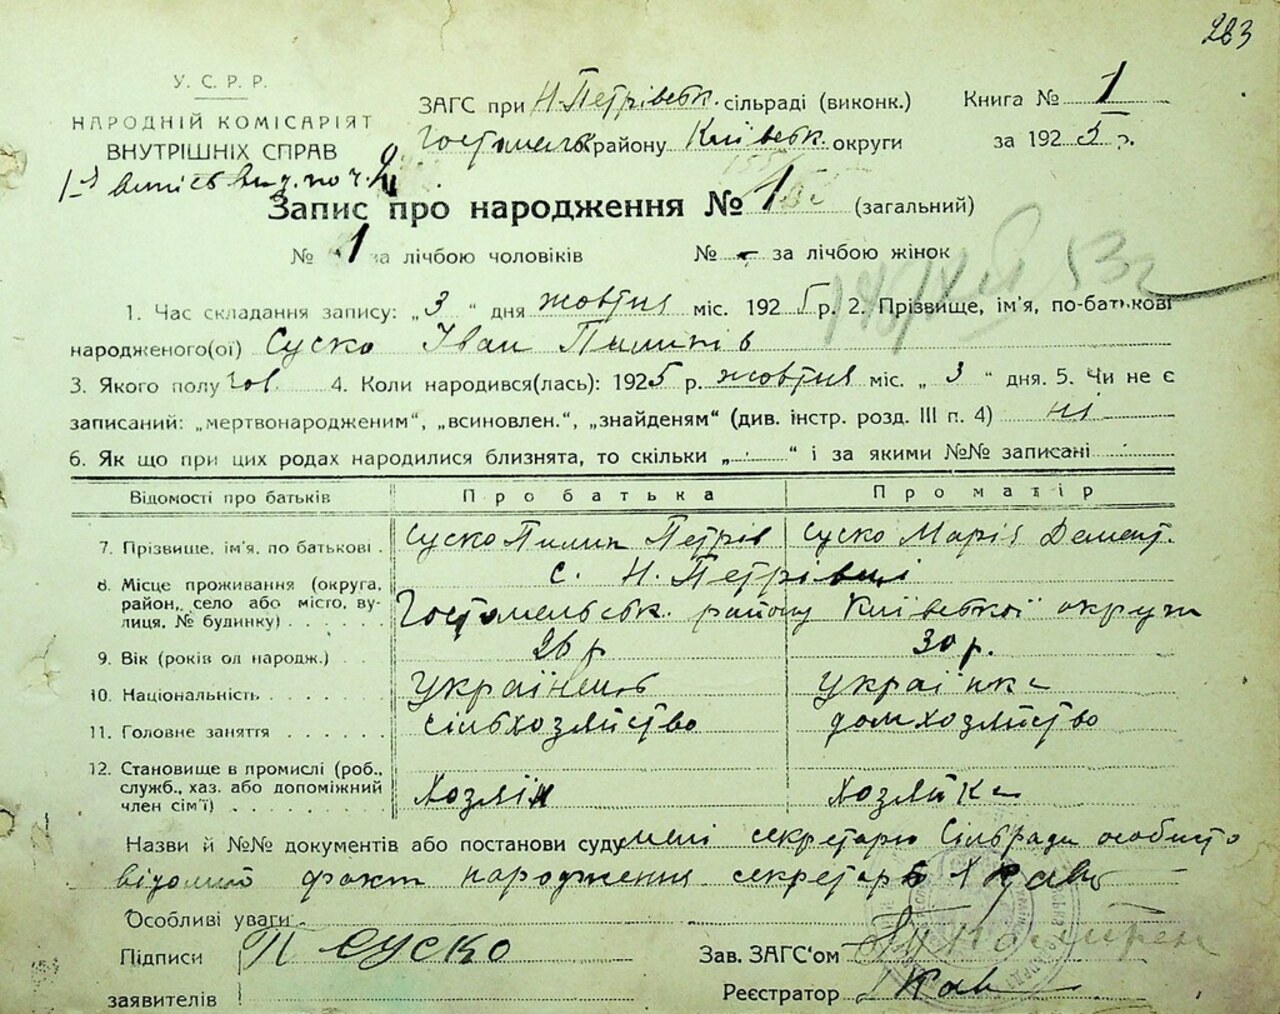 283
У. С. Р. Р.
НАРОДНІЙ КОМІСАРІЯТ
ВНУТРІШНІХ СПРАВ
ЗАГС при Н. Петрівськ. сільраді (виконк.) Книга № 1
Гостомельськ району Київськ. округи за 1925 р.
Запис про народження № 1 (загальний)
№ 1 за лічбою чоловіків № - за лічбою жінок
1. Час складання запису: „3“ дня жовтня міс. 1925 р. 2. Прізвище, ім'я, по-батькові
народженого(ої) Суско Іван Пилипів
3. Якого полу чов. 4. Коли народився(лась): 1925 р. жовтня міс. „3“ дня. 5. Чи не є
записаний: „мертвонародженим“, „всиновлен.“, „знайденям“ (див. інстр. розд. III п. 4) ні
6. Як що при цих родах народилися близнята, то скільки „-“ і за якими №№ записані
Відомості про батьків Про батька Про матір
7. Прізвище, ім'я, по батькові . Суско Пилип Петрів Суско Марія Демент.
8. Місце проживання (округа, с. Н. Петрівці
район, село або місто, ву-
лиця, № будинку) . . . . . Гостомельськ. району Київської округи
9. Вік (років од народж.) . . 26 р 30 р.
10. Національність . . . . . . Українець українка
11. Головне заняття . . . . . . сільхозяйство домхозяйство
12. Становище в промислі (роб.,
служб., хаз. або допоміжний
член сім'ї) . . . . . . . . Хозяїн Хозяйка
Назви й №№ документів або постанови суду мені секретарю Сільради особисто
відомий факт народження секретарь
Особливі уваги
Підписи П Суско Зав. ЗАГС'ом
заявителів Реєстратор